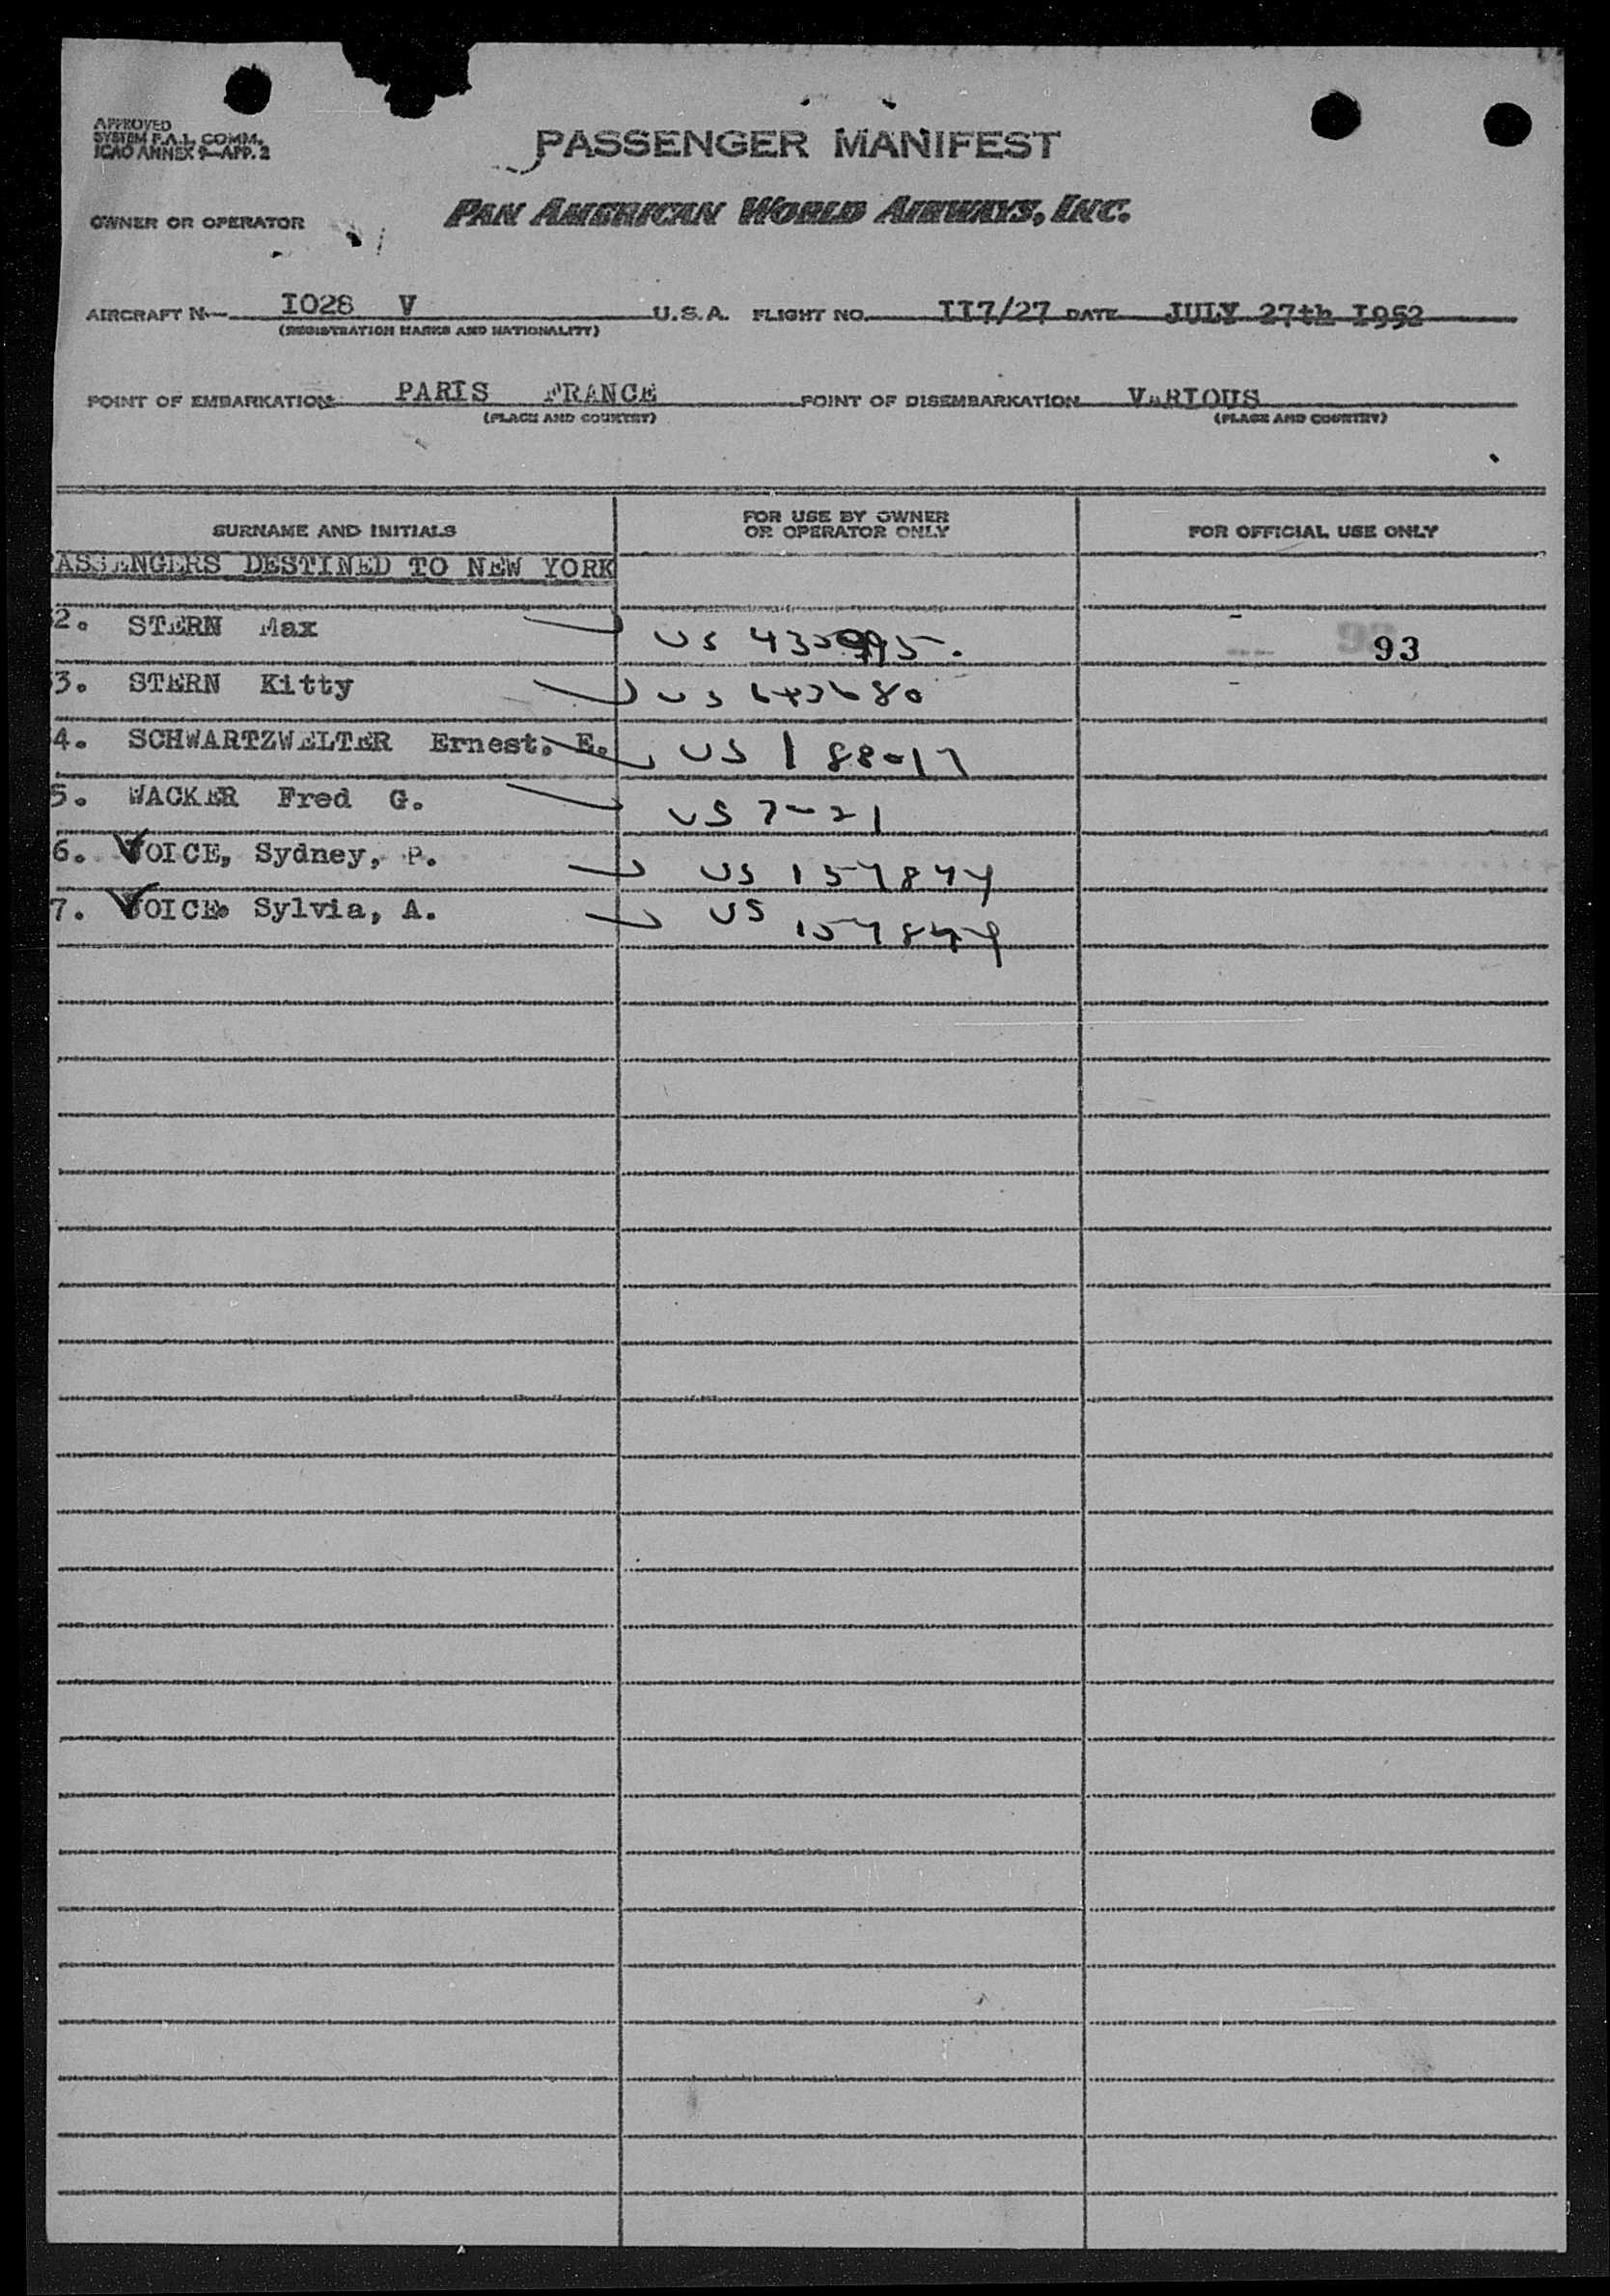 APPROVED
SYSTEM F.A.L. COMM.
ICAO ANNEX 9—APP. 2
PASSENGER MANIFEST
OWNER OR OPERATOR PAN AMERICAN WORLD AIRWAYS, INC.
AIRCRAFT N— I028 V U.S.A. FLIGHT NO. II7/27 DATE JULY 27th I952
(REGISTRATION MARKS AND NATIONALITY)
POINT OF EMBARKATION PARIS FRANCE POINT OF DISEMBARKATION VARIOUS
(PLACE AND COUNTRY) (PLACE AND COUNTRY)
SURNAME AND INITIALS FOR USE BY OWNER OR OPERATOR ONLY FOR OFFICIAL USE ONLY
ASSENGERS DESTINED TO NEW YORK
2. STERN Max US 93
3. STERN Kitty US
4. SCHWARTZWELTER Ernest. E. US
5. WACKER Fred G. US
6. VOICE, Sydney, P. US 157844
7. VOICE. Sylvia, A. US 157844